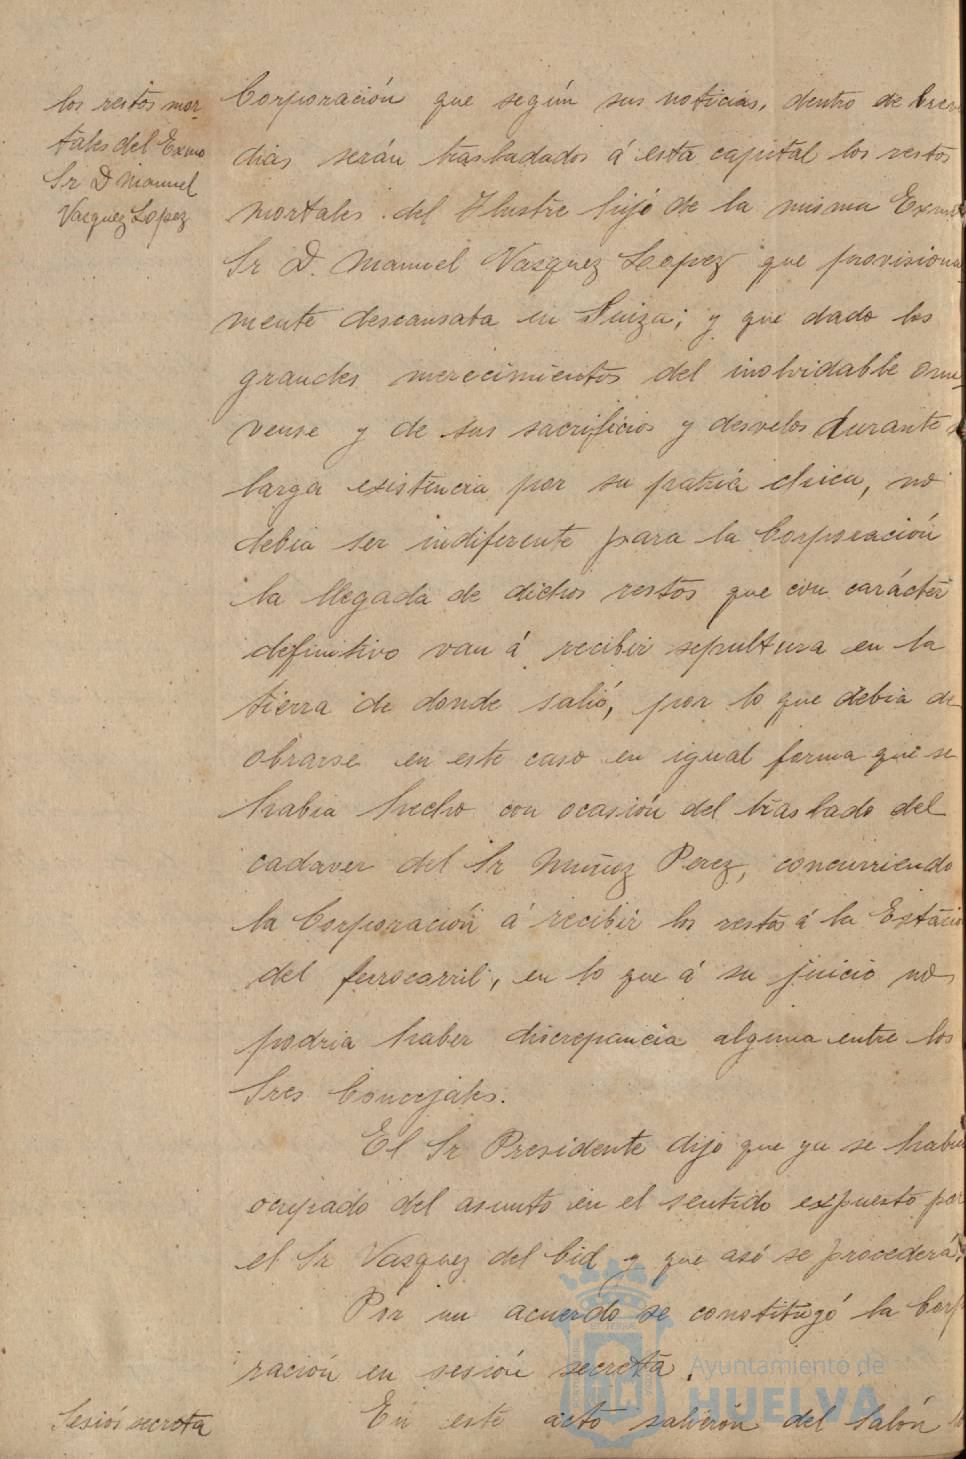 los restos mor-
tales del Exmo
Sr D Manuel
Vazquez Lopez
Corporación que según sus noticias, dentro de breves
dias serán trasladados á esta capital los restos
mortales del Ilustre hijo de la misma Exmo
Sr D. Manuel Vazquez Lopez que provisional-
mente descansaba en Suiza; y que dado los
grandes merecimientos del inolvidable onu-
vense y de sus sacrificios y desvelos durante su
larga existencia por su patria chica, no
debia ser indiferente para la Corporación
la llegada de dichos restos que con carácter
definitivo van á recibir sepultura en la
tierra de donde salió, por lo que debia de
obrarse en este caso en igual forma que se
habia hecho con ocasión del traslado del
cadaver del Sr Muñoz Perez, concurriendo
la Corporación á recibir los restos á la Estación
del ferrocarril, en lo que á su juicio no
podria haber discrepancia alguna entre los
Sres Concejales.
El Sr Presidente dijo que ya se habia
ocupado del asunto en el sentido expuesto por
el Sr Vazquez del Cid y que asó se procederá.
Por un acuerdo se constituyó la Corpo
ración en sesión secreta.
Sesión secreta
En este acto salieron del Salón
Ayuntamiento de
HUELVA